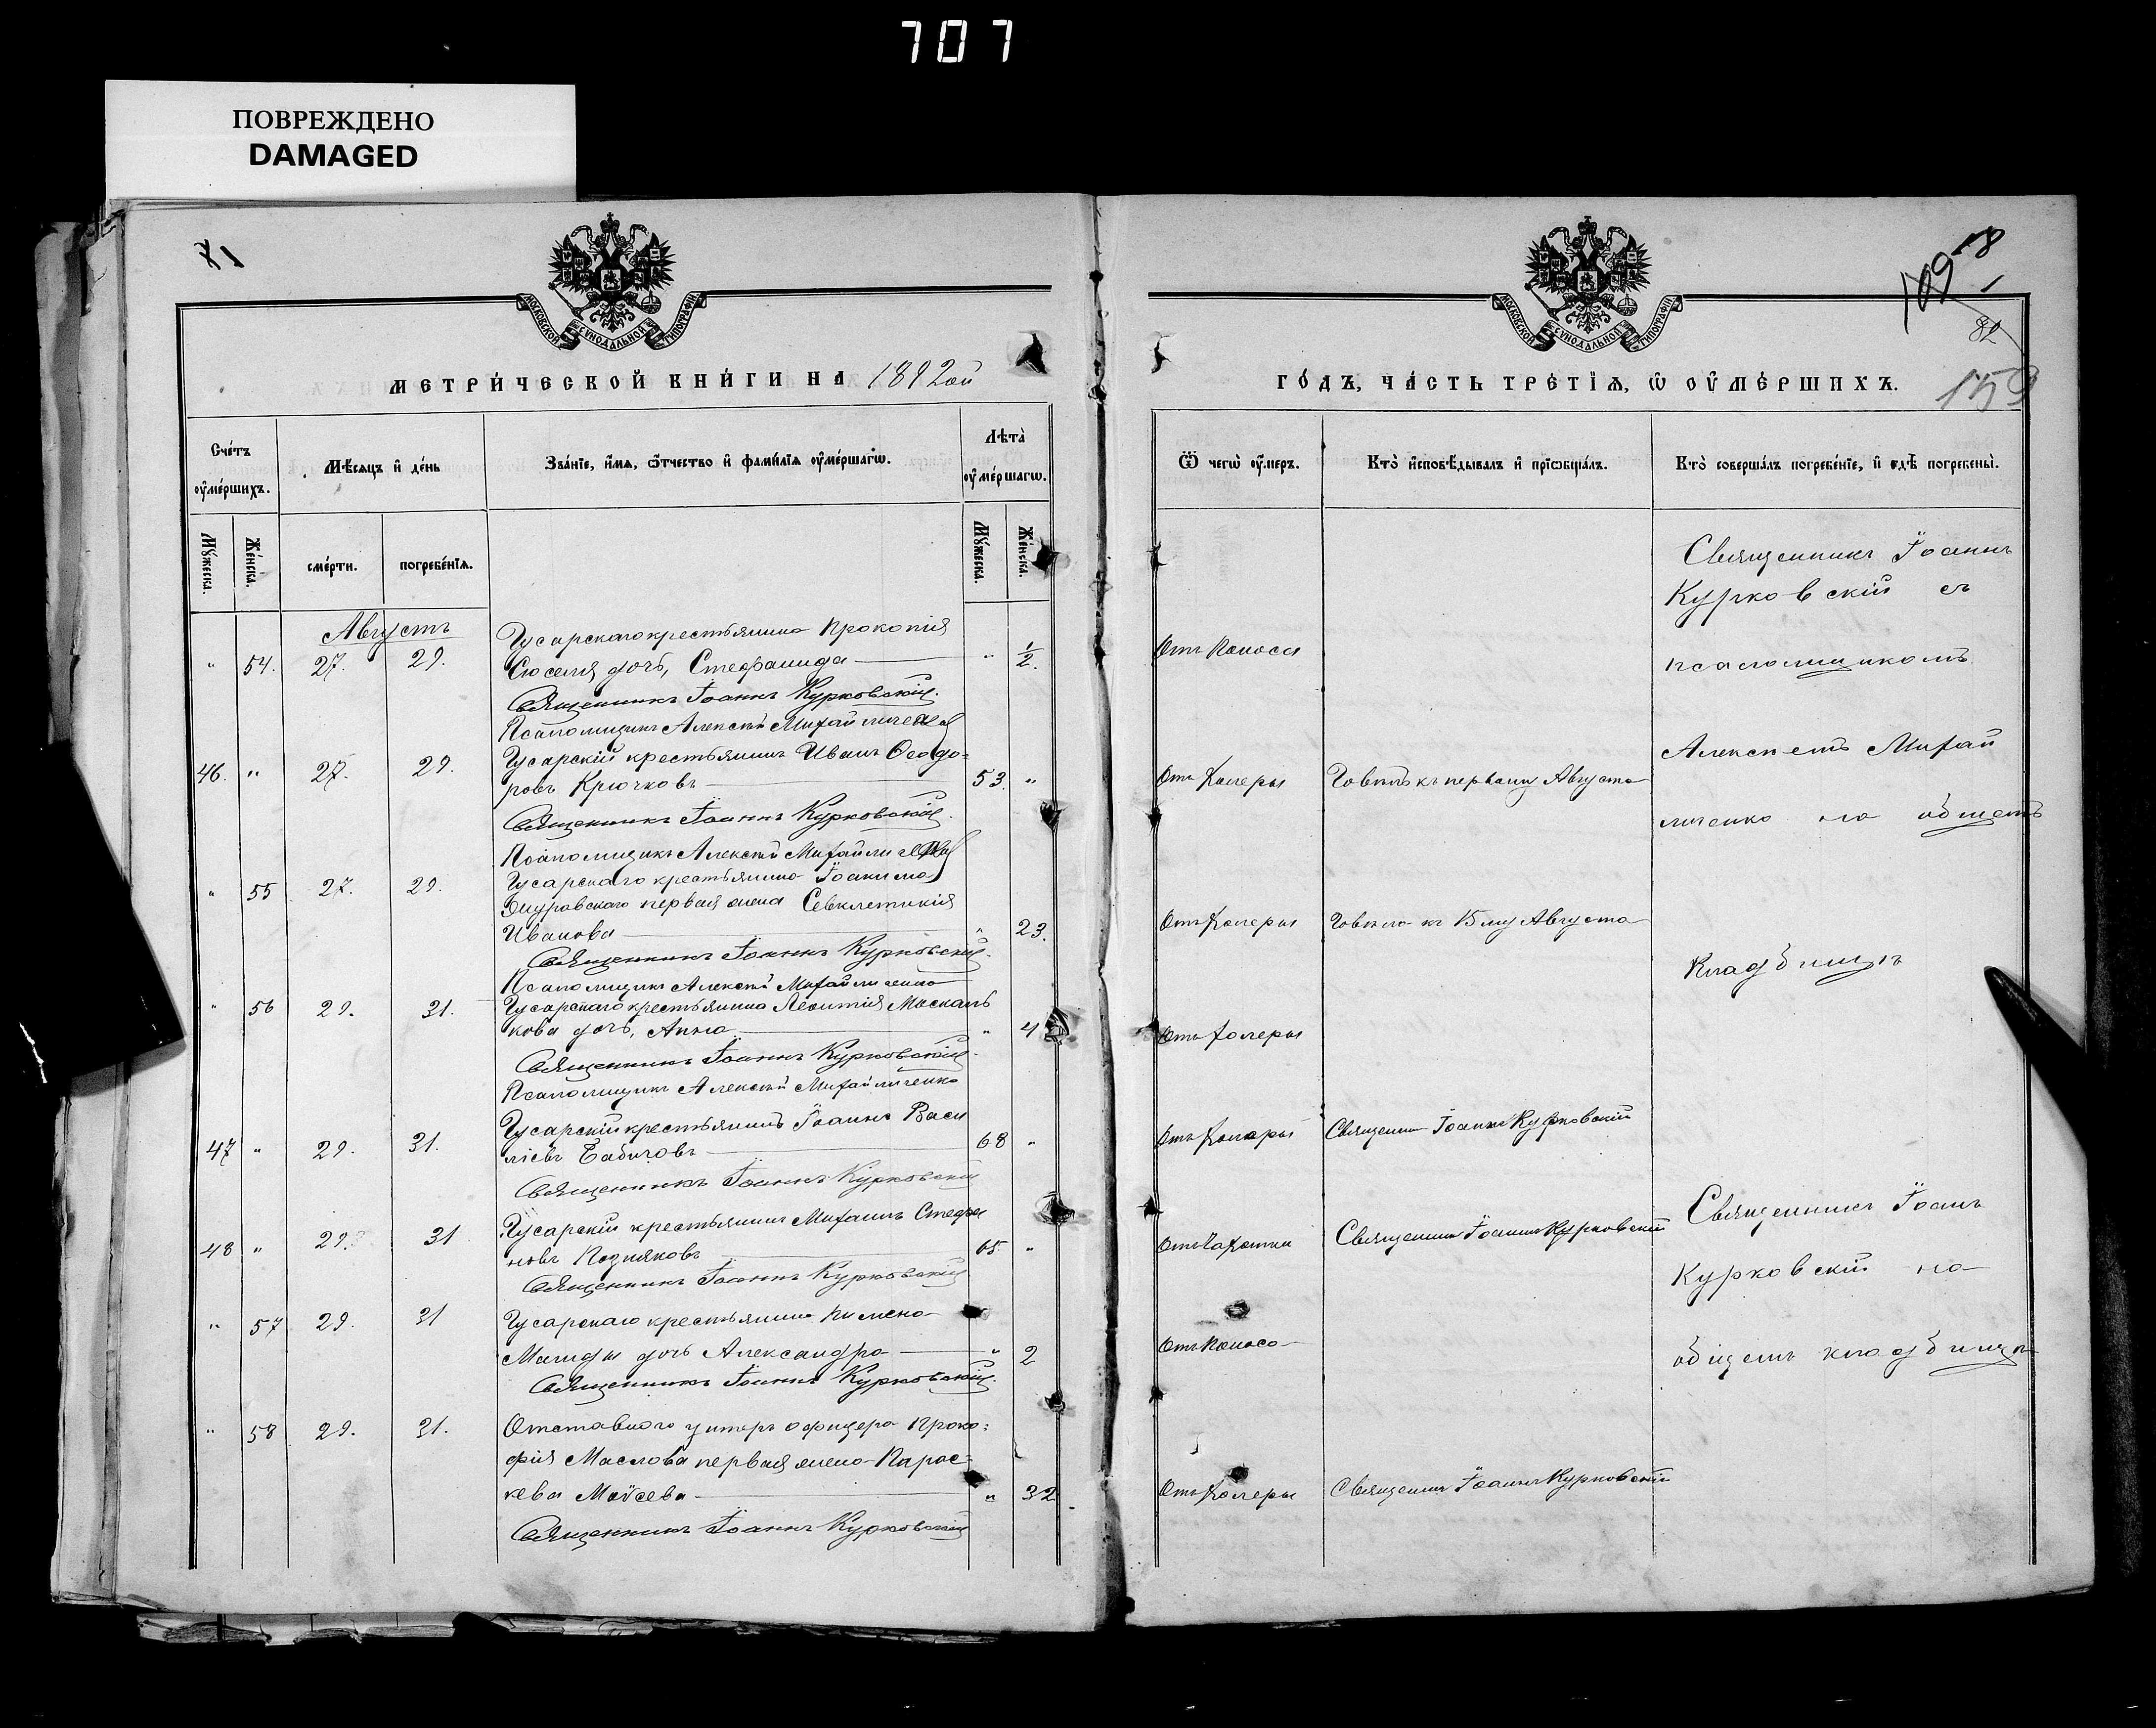 707
ПОВРЕЖДЕНО
DAMAGED
МОСКОВСКОЙ СѴНОДАЛЬНОЙ ТИПОГРАФІИ
МЕТРИ́ЧЕСКОЙ КНИ́ГИ НА 1892ой
Сче́тъ ᲂу҆ме́ршихъ.
Мѣ́сяцъ и҆ де́нь
Зва́нїе, и҆́мѧ, ѻ҆́тчество и҆ фами́лїѧ ᲂу҆ме́ршагѡ.
Лѣта̀ ᲂу҆ме́ршагѡ.
Мꙋ́жеска.
Же́нска.
сме́рти.
погребе́нїѧ.
Мꙋ́жеска.
Же́нска.
Августъ
" 54. 27. 29. Гусарскаго крестьянина Прокопія
Сюселя дочь, Стефанида " 1/2.
Священникъ Іоаннъ Курковскій.
Псаломщикъ Алексѣй Михайличенко
46. " 27. 29. Гусарскій крестьянинъ Иванъ Ѳеодо=
ровъ Крючковъ 53. "
Священникъ Іоаннъ Курковскій.
Псаломщикъ Алексѣй Михайличенко
" 55 27. 29. Гусарскаго крестьянина Іоакима
первая жена Севклетикія
Иванова " 23.
Священникъ Іоаннъ Курковскій.
Псаломщикъ Алексѣй Михайличенко
" 56 29. 31. Гусарскаго крестьянина Леонтія Маскаль
кова дочь, Анна " 4
Священникъ Іоаннъ Курковскій.
Псаломщикъ Алексѣй Михайличенко
47 " 29. 31. Гусарскій крестьянинъ Іоаннъ Васи
ліевъ Бабичовъ 68 "
Священникъ Іоаннъ Курковскій
48 " 29. 31 Гусарскій крестьянинъ Михаилъ Стефа
новъ Позняковъ 65 "
Священникъ Іоаннъ Курковскій
" 57 29. 31 Гусарскаго крестьянина Пимена
дочь Александра " 2
Священникъ Іоаннъ Курковскій.
" 58 29. 31. Отставного унтеръ офицера Проко=
фія Маслова первая жена Парас=
кева Моѵсева " 32
Священникъ Іоаннъ Курковскій
МОСКОВСКОЙ СѴНОДАЛЬНОЙ ТИПОГРАФІИ
109
58
82
159
ГО́ДЪ, ЧА́СТЬ ТРЕ́ТЇѦ, Ѡ ОУ҆МЕ́РШИХЪ.
Ѿ чегѡ̀ ᲂу҆́меръ.
Кто̀ и҆сповѣ́дывалъ и҆ прїѡбща́лъ.
Кто̀ соверша́лъ погребе́нїе, и҆ гдѣ̀ погребены̀.
Священникъ Іоаннъ
Курковскій съ
Отъ Поноса
псаломщикомъ
Алексѣемъ Михай
Отъ Холеры Говѣлъ къ первому Августа
личенко на общемъ
Отъ Холеры Говѣла къ 15му Августа
Кладбищѣ
Отъ Холеры
Отъ Холеры Священникъ Іоаннъ Курковскій
Священникъ Іоаннъ
Отъ Чахотки Священникъ Іоаннъ Курковскій
Курковскій на
Отъ Поноса
общемъ кладбищѣ
Отъ Холеры Священникъ Іоаннъ Курковскій